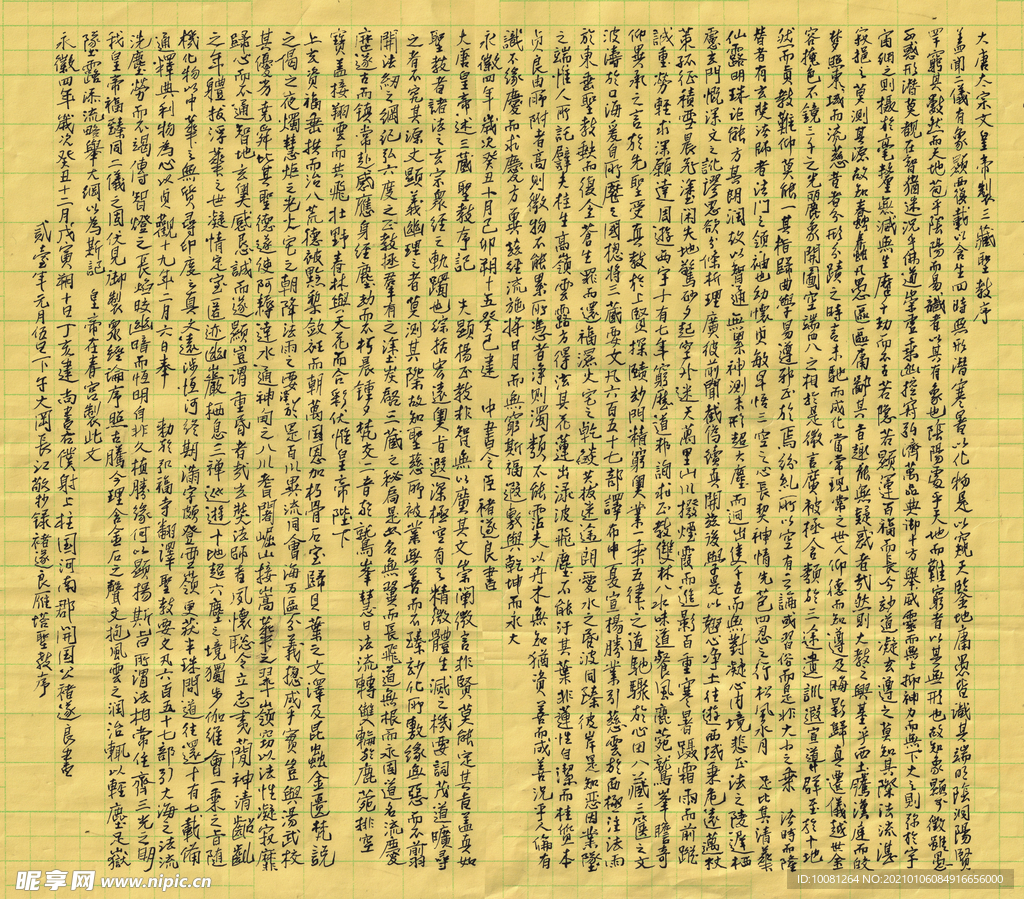 大唐太宗文皇帝製三藏聖教序
蓋聞二儀有象顯覆載以含生四時無形潛寒暑以化物是以窺天鑒地庸愚皆識其端明陰洞陽賢
罕窮其數然而天地苞乎陰陽而易識者以其有象也陰陽處乎天地而難窮者以其無形也故知象顯可徵雖愚
不惑形潛莫覩在智猶迷況乎佛道崇虛乘幽控寂弘濟萬品典御十方舉威靈而無上抑神力而無下大之則弥於宇
宙細之則攝於毫釐無滅無生歷千劫而不古若隱若顯運百福而長今妙道凝玄遵之莫知其際法流湛
寂挹之莫測其源故知蠢蠢凡愚區區庸鄙其旨趣能無疑惑者哉然則大教之興基乎西土騰漢庭而皎
夢照東域而流慈昔者分形分蹟之時言未馳而成化當常現常之世人仰德而知遵及乎晦影歸真遷儀越世金
容掩色不鏡三千之光麗象開圖空端四八之相於是微言廣被拯含類於三途遺訓遐宣導群生於十地
然而真教難仰莫能一其指歸曲學易遵邪正於焉紛糺所以空有之論或習俗而是非大小之乘 沿時而隆
替者有玄奘法師者法門之領袖也幼懷貞敏早悟三空之心長契神情先苞四忍之行松風水月 足比其清華
仙露明珠詎能方其朗潤故以智通無累神測未形超六塵而迥出隻千古而無對凝心內境悲正法之陵遲栖
慮玄門慨深文之訛謬思欲分條析理廣彼前聞截偽續真開茲後學是以翹心淨土往遊西域乘危遠邁杖
策孤征積雪晨飛塗間失地驚砂夕起空外迷天萬里山川撥煙霞而進影百重寒暑躡霜雨而前蹤
誠重勞輕求深願達周遊西宇十有七年窮歷道邦詢求正教雙林八水味道餐風鹿苑鷲峯瞻奇
仰異承之言於先聖受真教於上賢探賾妙門精窮奧業一乘五律之道馳驟於心田八藏三篋之文
波濤於口海爰自所歷之國惣將三藏要文凡六百五十七部譯布中夏宣揚勝業引慈雲於西極注法雨
於東垂聖教缺而復全蒼生罪而還福濕火宅之乾燄共拔迷途朗愛水之昏波同臻彼岸是知惡因業墜
之端惟人所託譬夫桂生高嶺雲露方得泫其花蓮出淥波飛塵不能汙其葉非蓮性自潔而桂質本
貞良由所附者高則微物不能累所憑者淨則濁類不能霑夫以卉木無知猶資善而成善況乎人倫有
識不緣慶而求慶方冀茲經流施將日月而無窮斯福遐敷與乾坤而永大
永徽四年歲次癸丑十月己卯朔十五癸巳建 中書令臣褚遂良書
大唐皇帝述三藏聖教序記 夫顯揚正教非智無以廣其文崇闡微言非賢莫能定其旨蓋真如
聖教者諸法之玄宗衆經之軌躅也綜括宏遠奧旨遐深極空有之精微體生滅之機要詞茂道曠尋
之者不究其源文顯義幽理之者莫測其際故知聖慈所被業無善而不臻妙化所敷緣無惡而不翦
開法網之綱紀弘六度之正教拯羣有之塗炭啓三藏之秘扃是以名無翼而長飛道無根而永固道名流慶
歷遂古而鎮常赴感應身經塵劫而不朽晨鍾夕梵交二音於鷲峯慧日法流轉雙輪於鹿苑排空
寶蓋接翔雲而共飛莊野春林與天花而合彩伏惟皇帝陛下
上玄資福垂拱而治八荒德被黔黎斂衽而朝萬國恩加朽骨石室歸貝葉之文澤及昆蟲金匱梵說
之偈遂使阿耨達水通神甸之八川耆闍崛山接嵩華之翠嶺竊以法性凝寂靡
歸心而不通智地玄奧感懇誠而遂顯豈謂重昏 玄奘法師者夙懷聰令立志夷簡神清齠齔
之年體拔浮華之世凝情定室匿迹幽巖栖息三禪巡遊十地超六塵之境獨步伽維會一乘之旨隨
機化物以中華之無質尋印度之真文遠涉恒河終期滿字頻登雪嶺更獲半珠問道往還十有七載備
通釋典利物為心以貞觀十九年二月六日奉 勅於弘福寺翻譯聖教要文凡六百五十七部引大海之法流
洗塵勞而不竭傳智燈之長焰皎幽暗而恆明自非久植勝緣何以顯揚斯旨所謂法相常住齊三光之明
我皇帝福臻同二儀之固伏見御製衆經論序照古騰今理含金石之聲文抱風雲之潤治輒以輕塵足嶽
墜露添流略舉大綱以為斯記 皇帝在春宮製此文
永徽四年歲次癸丑十二月戊寅朔十日丁亥建 尚書右僕射上柱國河南郡開國公褚遂良書
貳壹年元月伍日下午大岡長江敬抄錄褚遂良雁塔聖教序
昵享网 www.nipic.cn
ID:10081264 NO:20210106084916656000